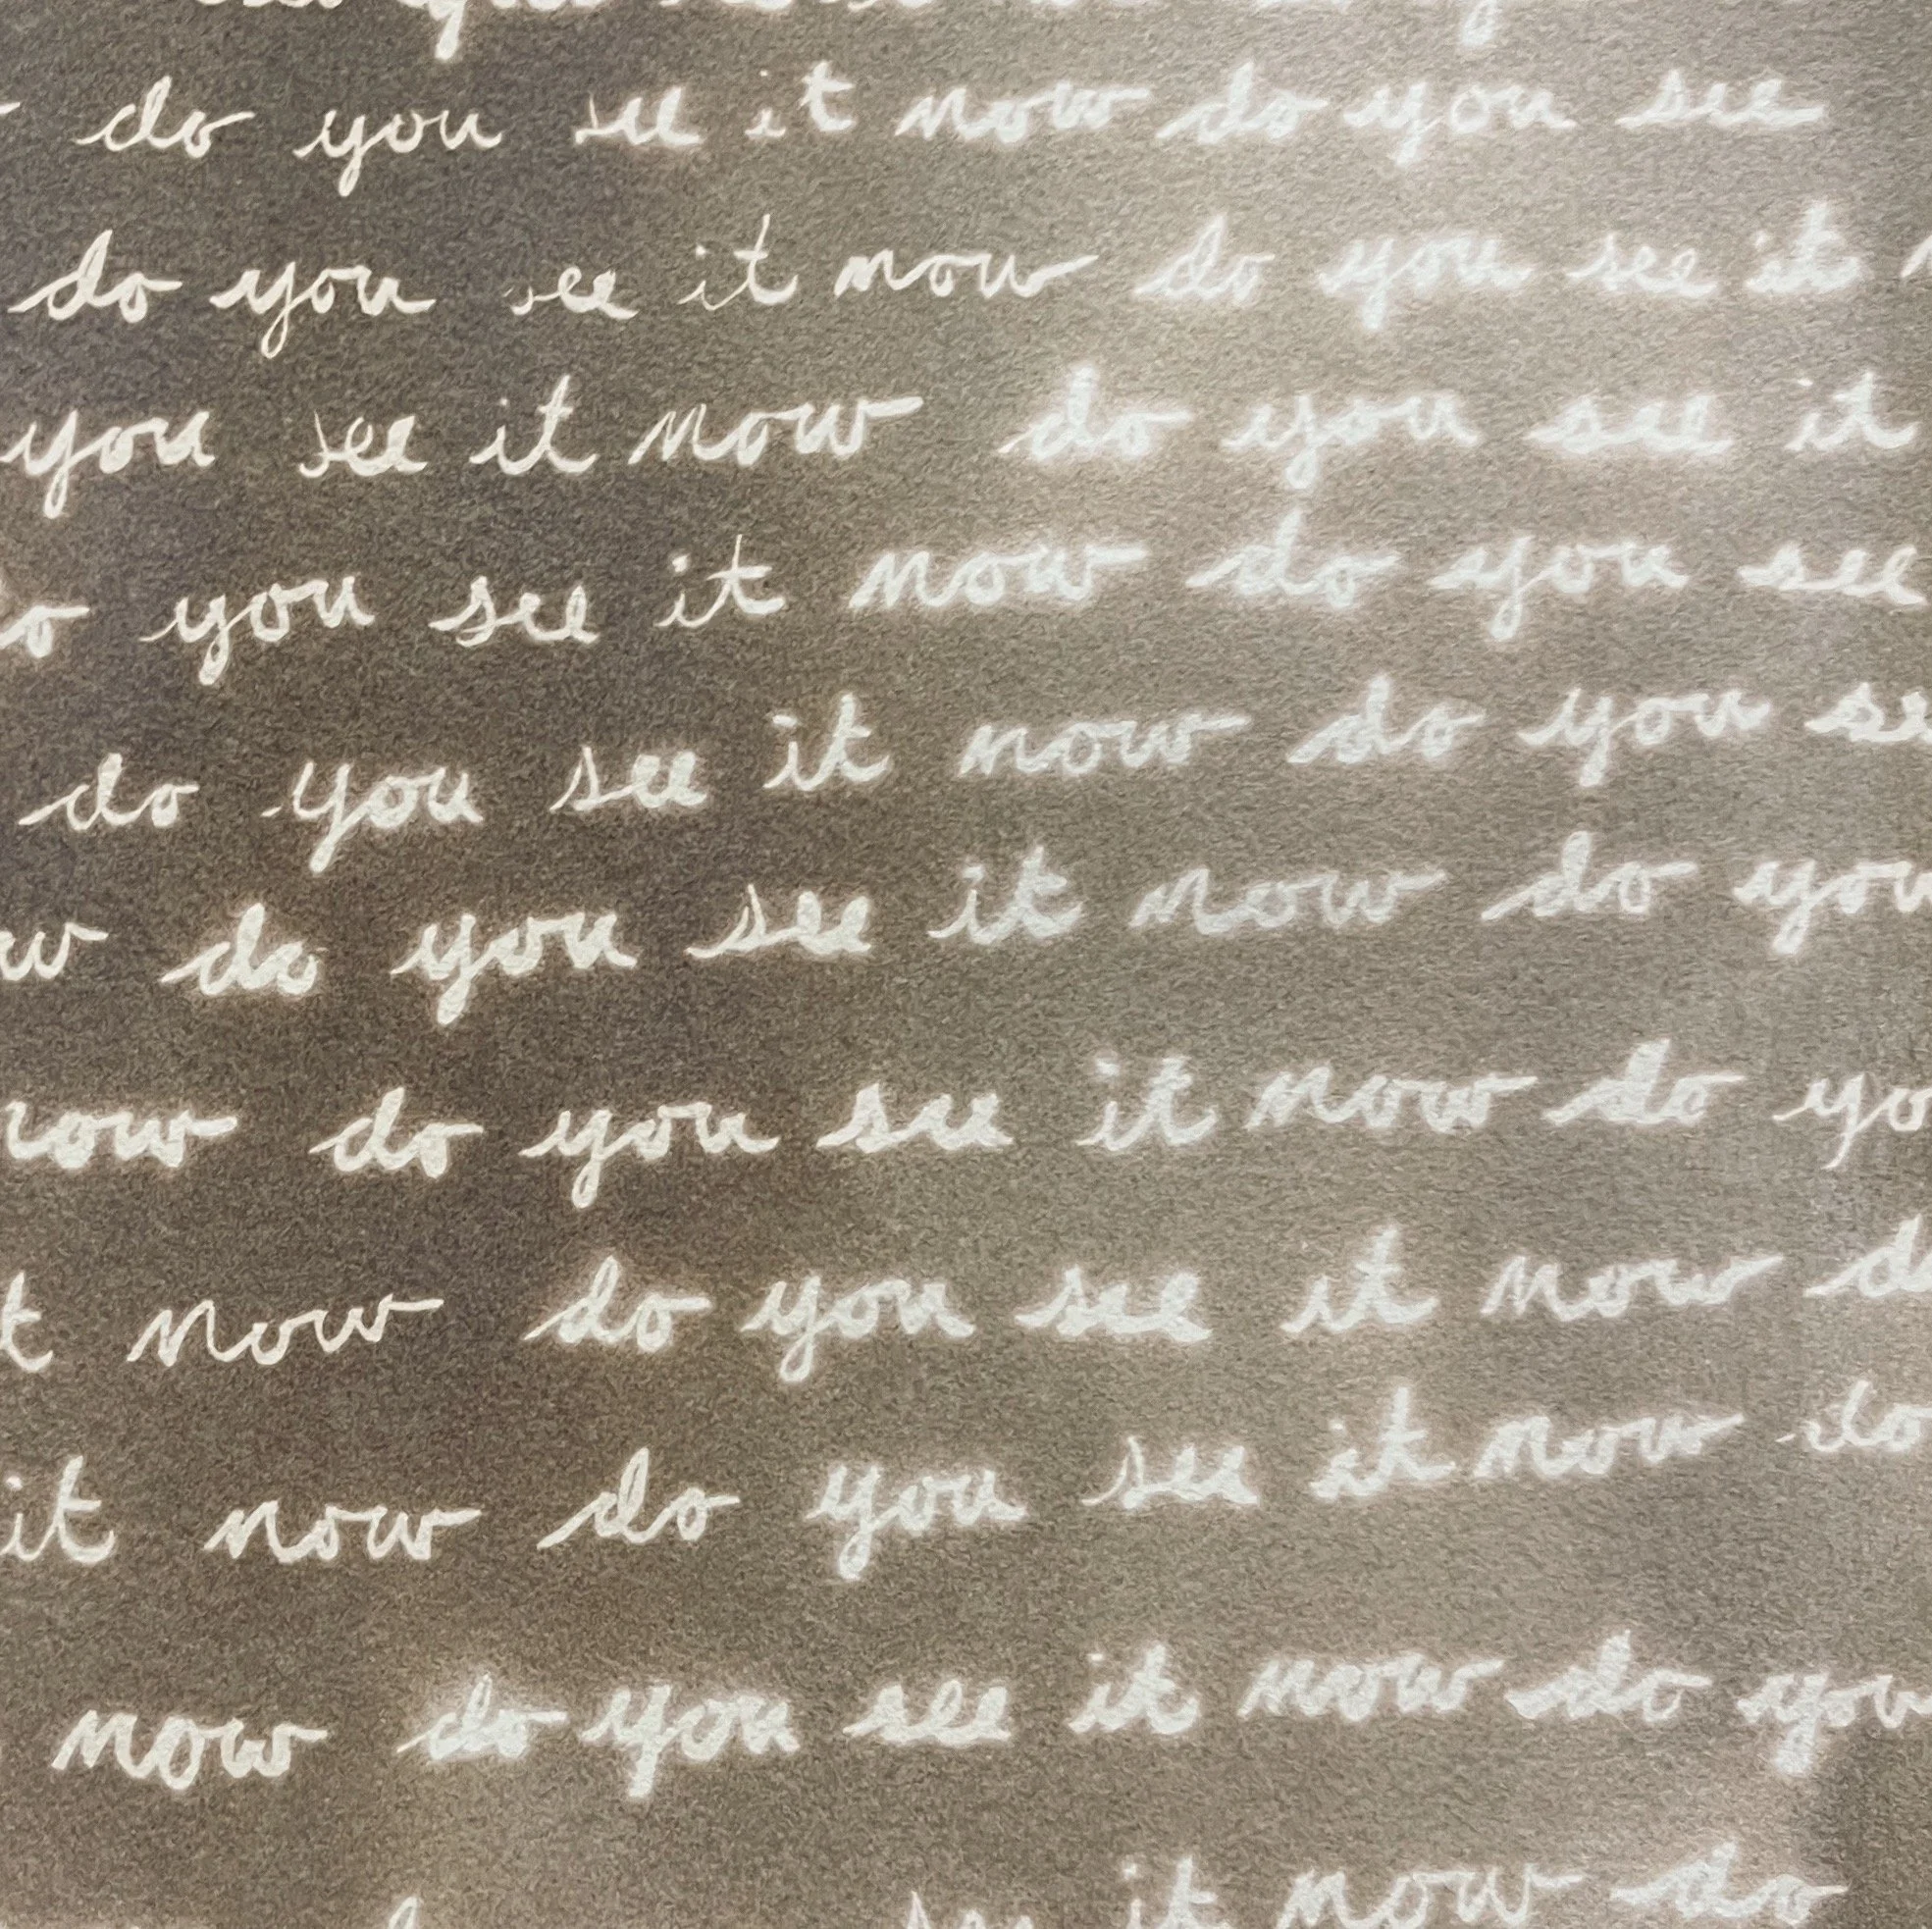 do you see it now do you see
do you see it now do you see it
you see it now do you see it
do you see it now do you see
do you see it now do you se
w do you see it now do you
now do you see it now do yo
t now do you see it now do
it now do you see it now do
now do you see it now do you
see it now do